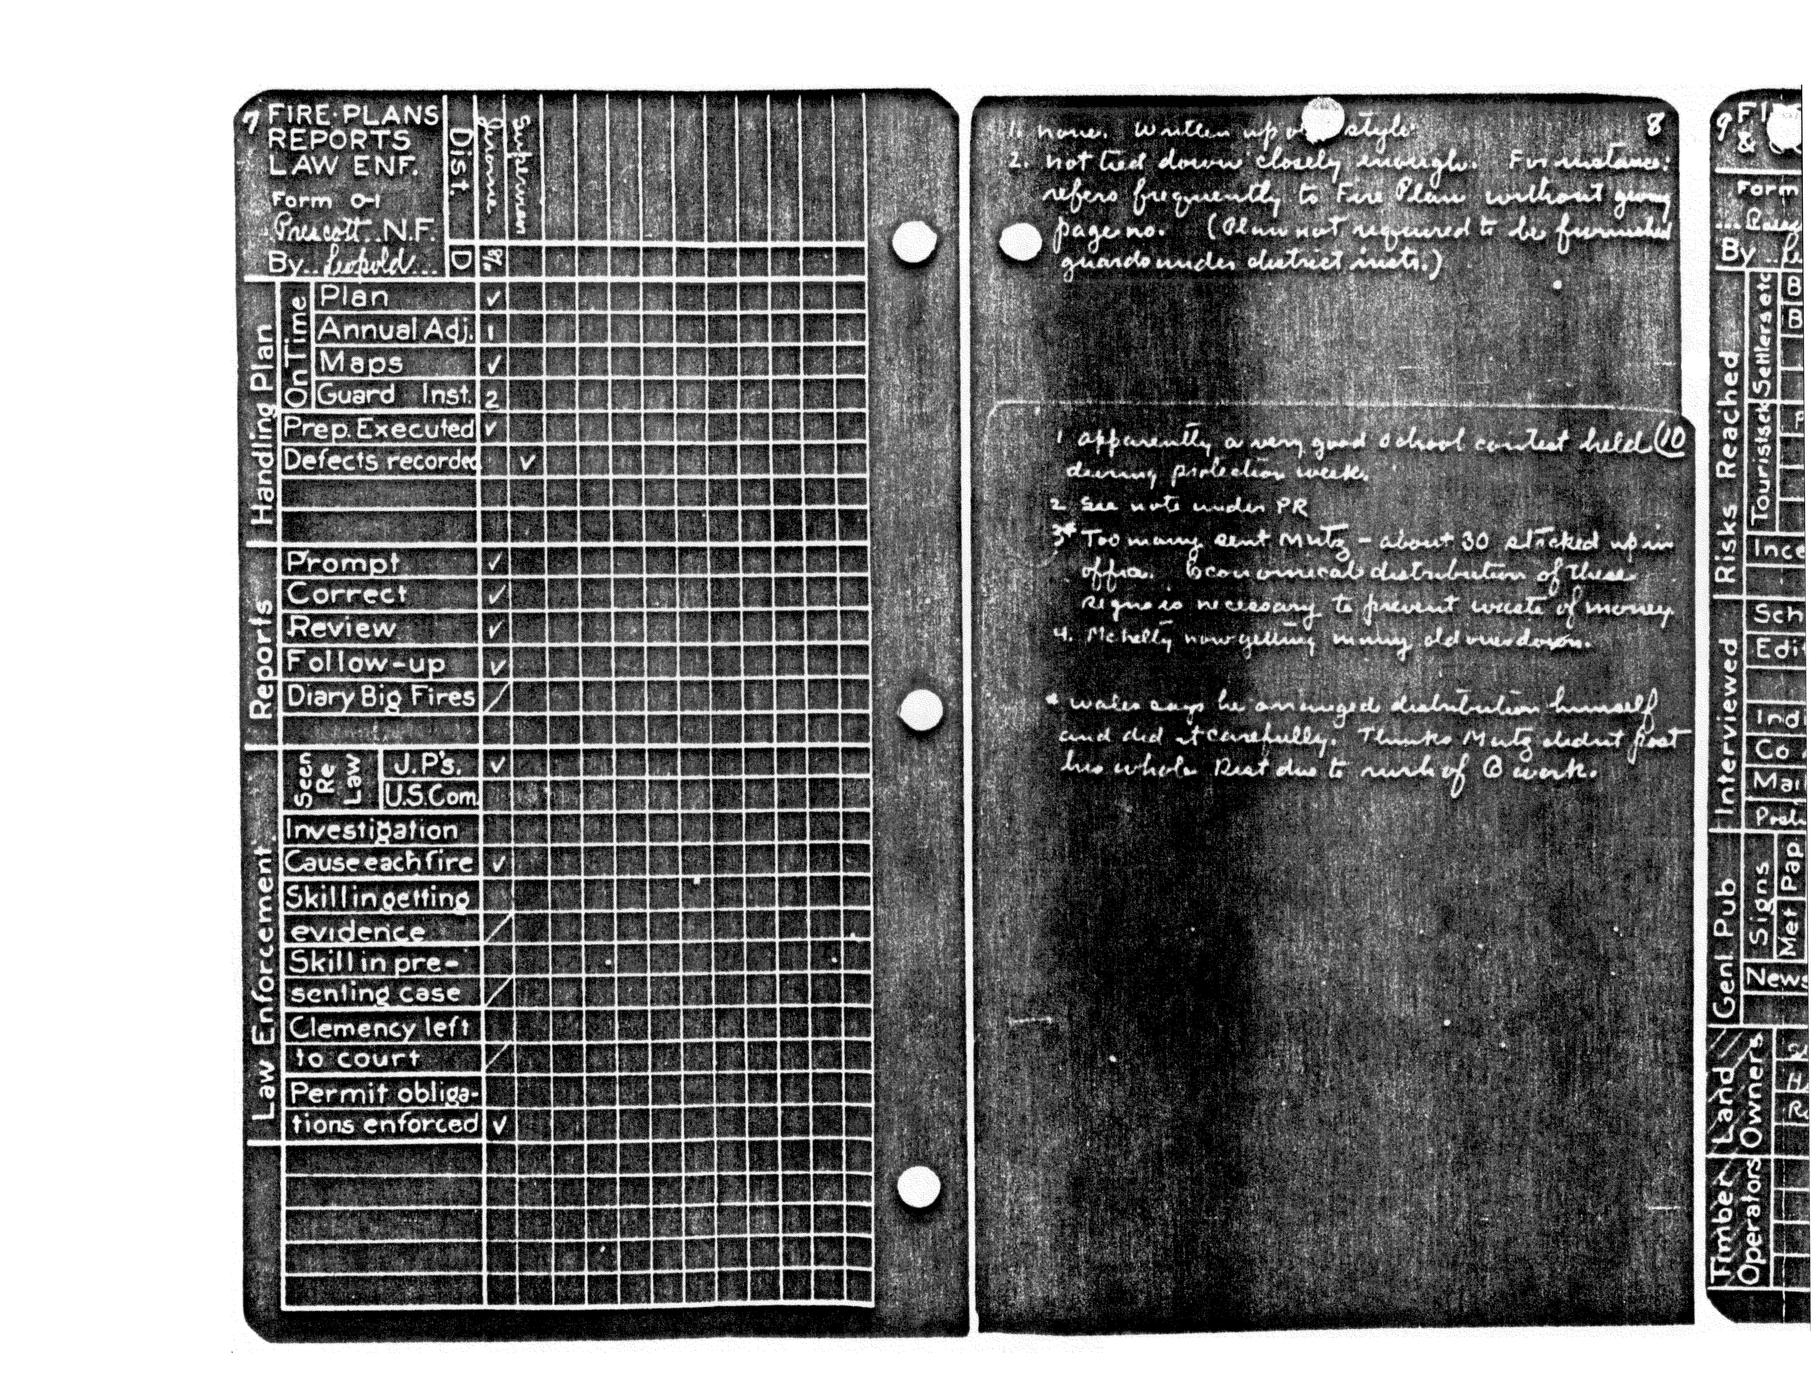 7 FIRE·PLANS
REPORTS
LAW ENF.
Form O-1
Prescott N.F.
By.. Leopold...
Dist.
D
Jerome
Supervisor
8/10
Handling Plan
On Time
Plan ✓
Annual Adj. 1
Maps ✓
Guard Inst. 2
Prep. Executed ✓
Defects recorded ✓
Reports
Prompt ✓
Correct ✓
Review ✓
Follow-up ✓
Diary Big Fires /
Law Enforcement.
Seen Re Law
J.P's. ✓
U.S.Com.
Investigation
Cause each fire ✓
Skill in getting
evidence /
Skill in pre-
senting case /
Clemency left
to court /
Permit obliga-
tions enforced ✓
8
1. none. Written up style
2. not tied down closely enough. For instance:
refers frequently to Fire Plan without giving
page no. (Plan not required to be furnished
guards under district insts.)
10
1 apparently a very good school contest held
during protection week.
2 See note under PR
3* Too many sent Mutz - about 30 stacked up in
office. Economical distribution of these
signs is necessary to prevent waste of money
4. McNelly now getting many old ones down.
* Wales says he arranged distribution himself
and did it carefully. Thinks Mutz didnt post
his whole Dist due to rush of G work.
9
&
Form
By
Risks Reached
Tourists&Settlers etc
Ince
Interviewed
Sch
Edi
Indi
Co
Mai
Genl. Pub
Signs
Met
Pap
News
Land Owners
Timber Operators